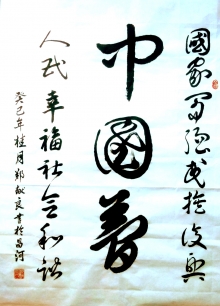 國家富强民族復興
中國夢
人民幸福社会和諧
癸巳年桂月郑献良书於昌河